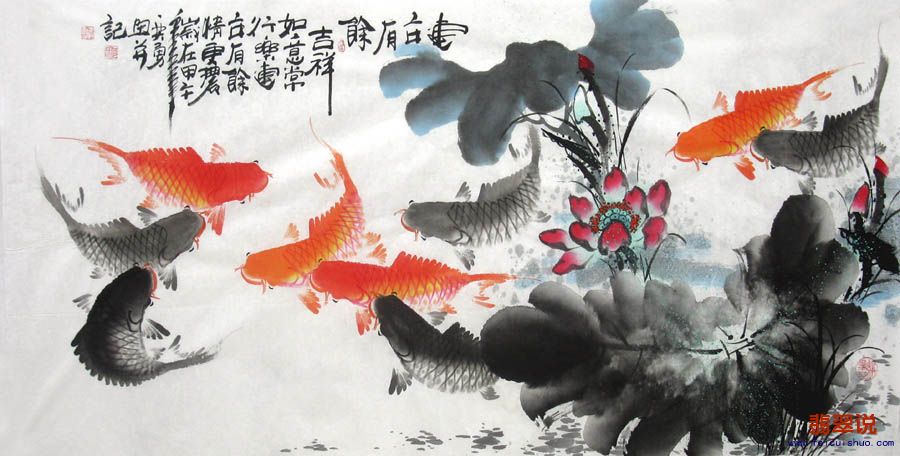 連年有餘
吉祥
如意常
行樂連
年有餘
情更濃
歲在甲午年
勇
画并
記
翡翠说
www.feicuishuo.com